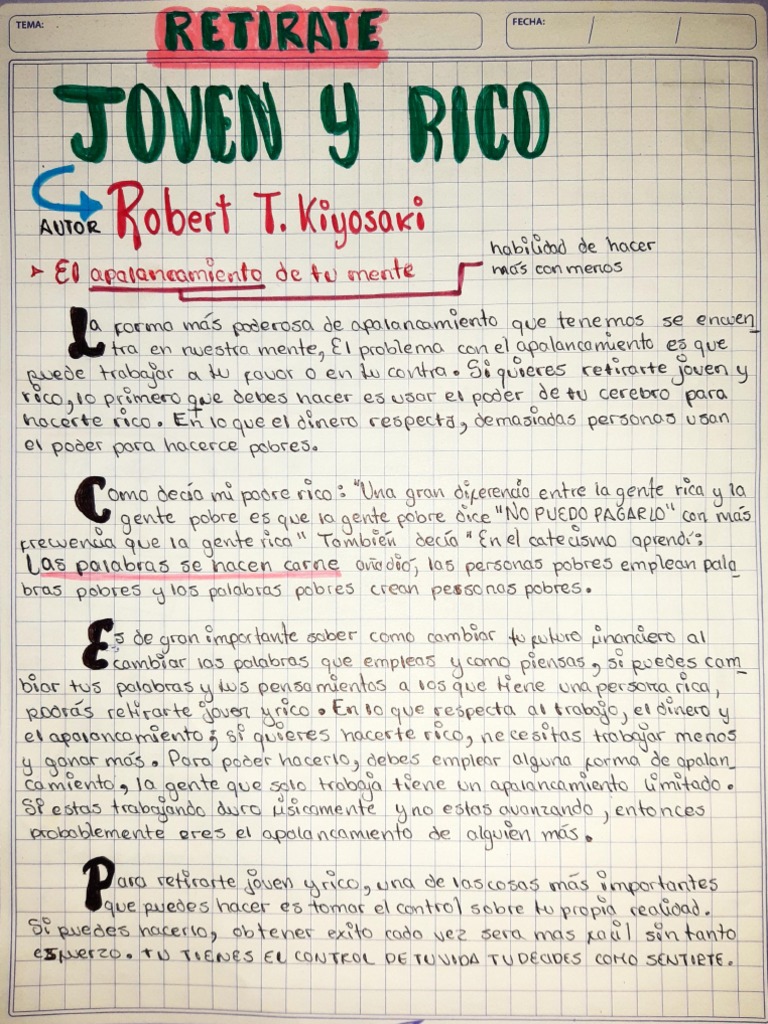 TEMA:
RETIRATE
FECHA: / /
JOVEN Y RICO
AUTOR Robert T. Kiyosaki
➤ El apalancamiento de tu mente
habilidad de hacer
más con menos
La forma más poderosa de apalancamiento que tenemos se encuen
tra en nuestra mente, El problema con el apalancamiento es que
puede trabajar a tu favor o en tu contra. Si quieres retirarte joven y
rico, lo primero que debes hacer es usar el poder de tu cerebro para
hacerte rico. En lo que el dinero respecta, demasiadas personas usan
el poder para hacerce pobres.
Como decía mi padre rico: "Una gran diferencia entre la gente rica y la
gente pobre es que la gente pobre dice "NO PUEDO PAGARLO" con más
frecuencia que la gente rica" También decía "En el catecismo aprendí:
Las palabras se hacen carne añadió, las personas pobres emplean pala_
bras pobres y los palabras pobres crean pesonas pobres.
Es de gran importante saber como cambiar tu futuro financiero al
cambiar las palabras que empleas y como piensas, si puedes cam_
biar tus palabras y tus pensamientos a los que tiene una persona rica,
podrás retirarte joven y rico. En lo que respecta al trabajo, el dinero y
el apalancamiento; si quieres hacerte rico, necesitas trabajar menos
y ganar más. Para poder hacerlo, debes emplear alguna forma de apalan_
camiento, la gente que solo trabaja tiene un apalancamiento limitado.
Si estas trabajando duro físicamente y no estas avanzando, entonces
probablemente eres el apalancamiento de alguien más.
Para retirarte joven y rico, una de las cosas más importantes
que puedes hacer es tomar el control sobre tu propia realidad.
Si puedes hacerlo, obtener exito cada vez sera mas facil sin tanto
esfuerzo. TU TIENES EL CONTROL DE TU VIDA TU DECIDES COMO SENTIRTE.